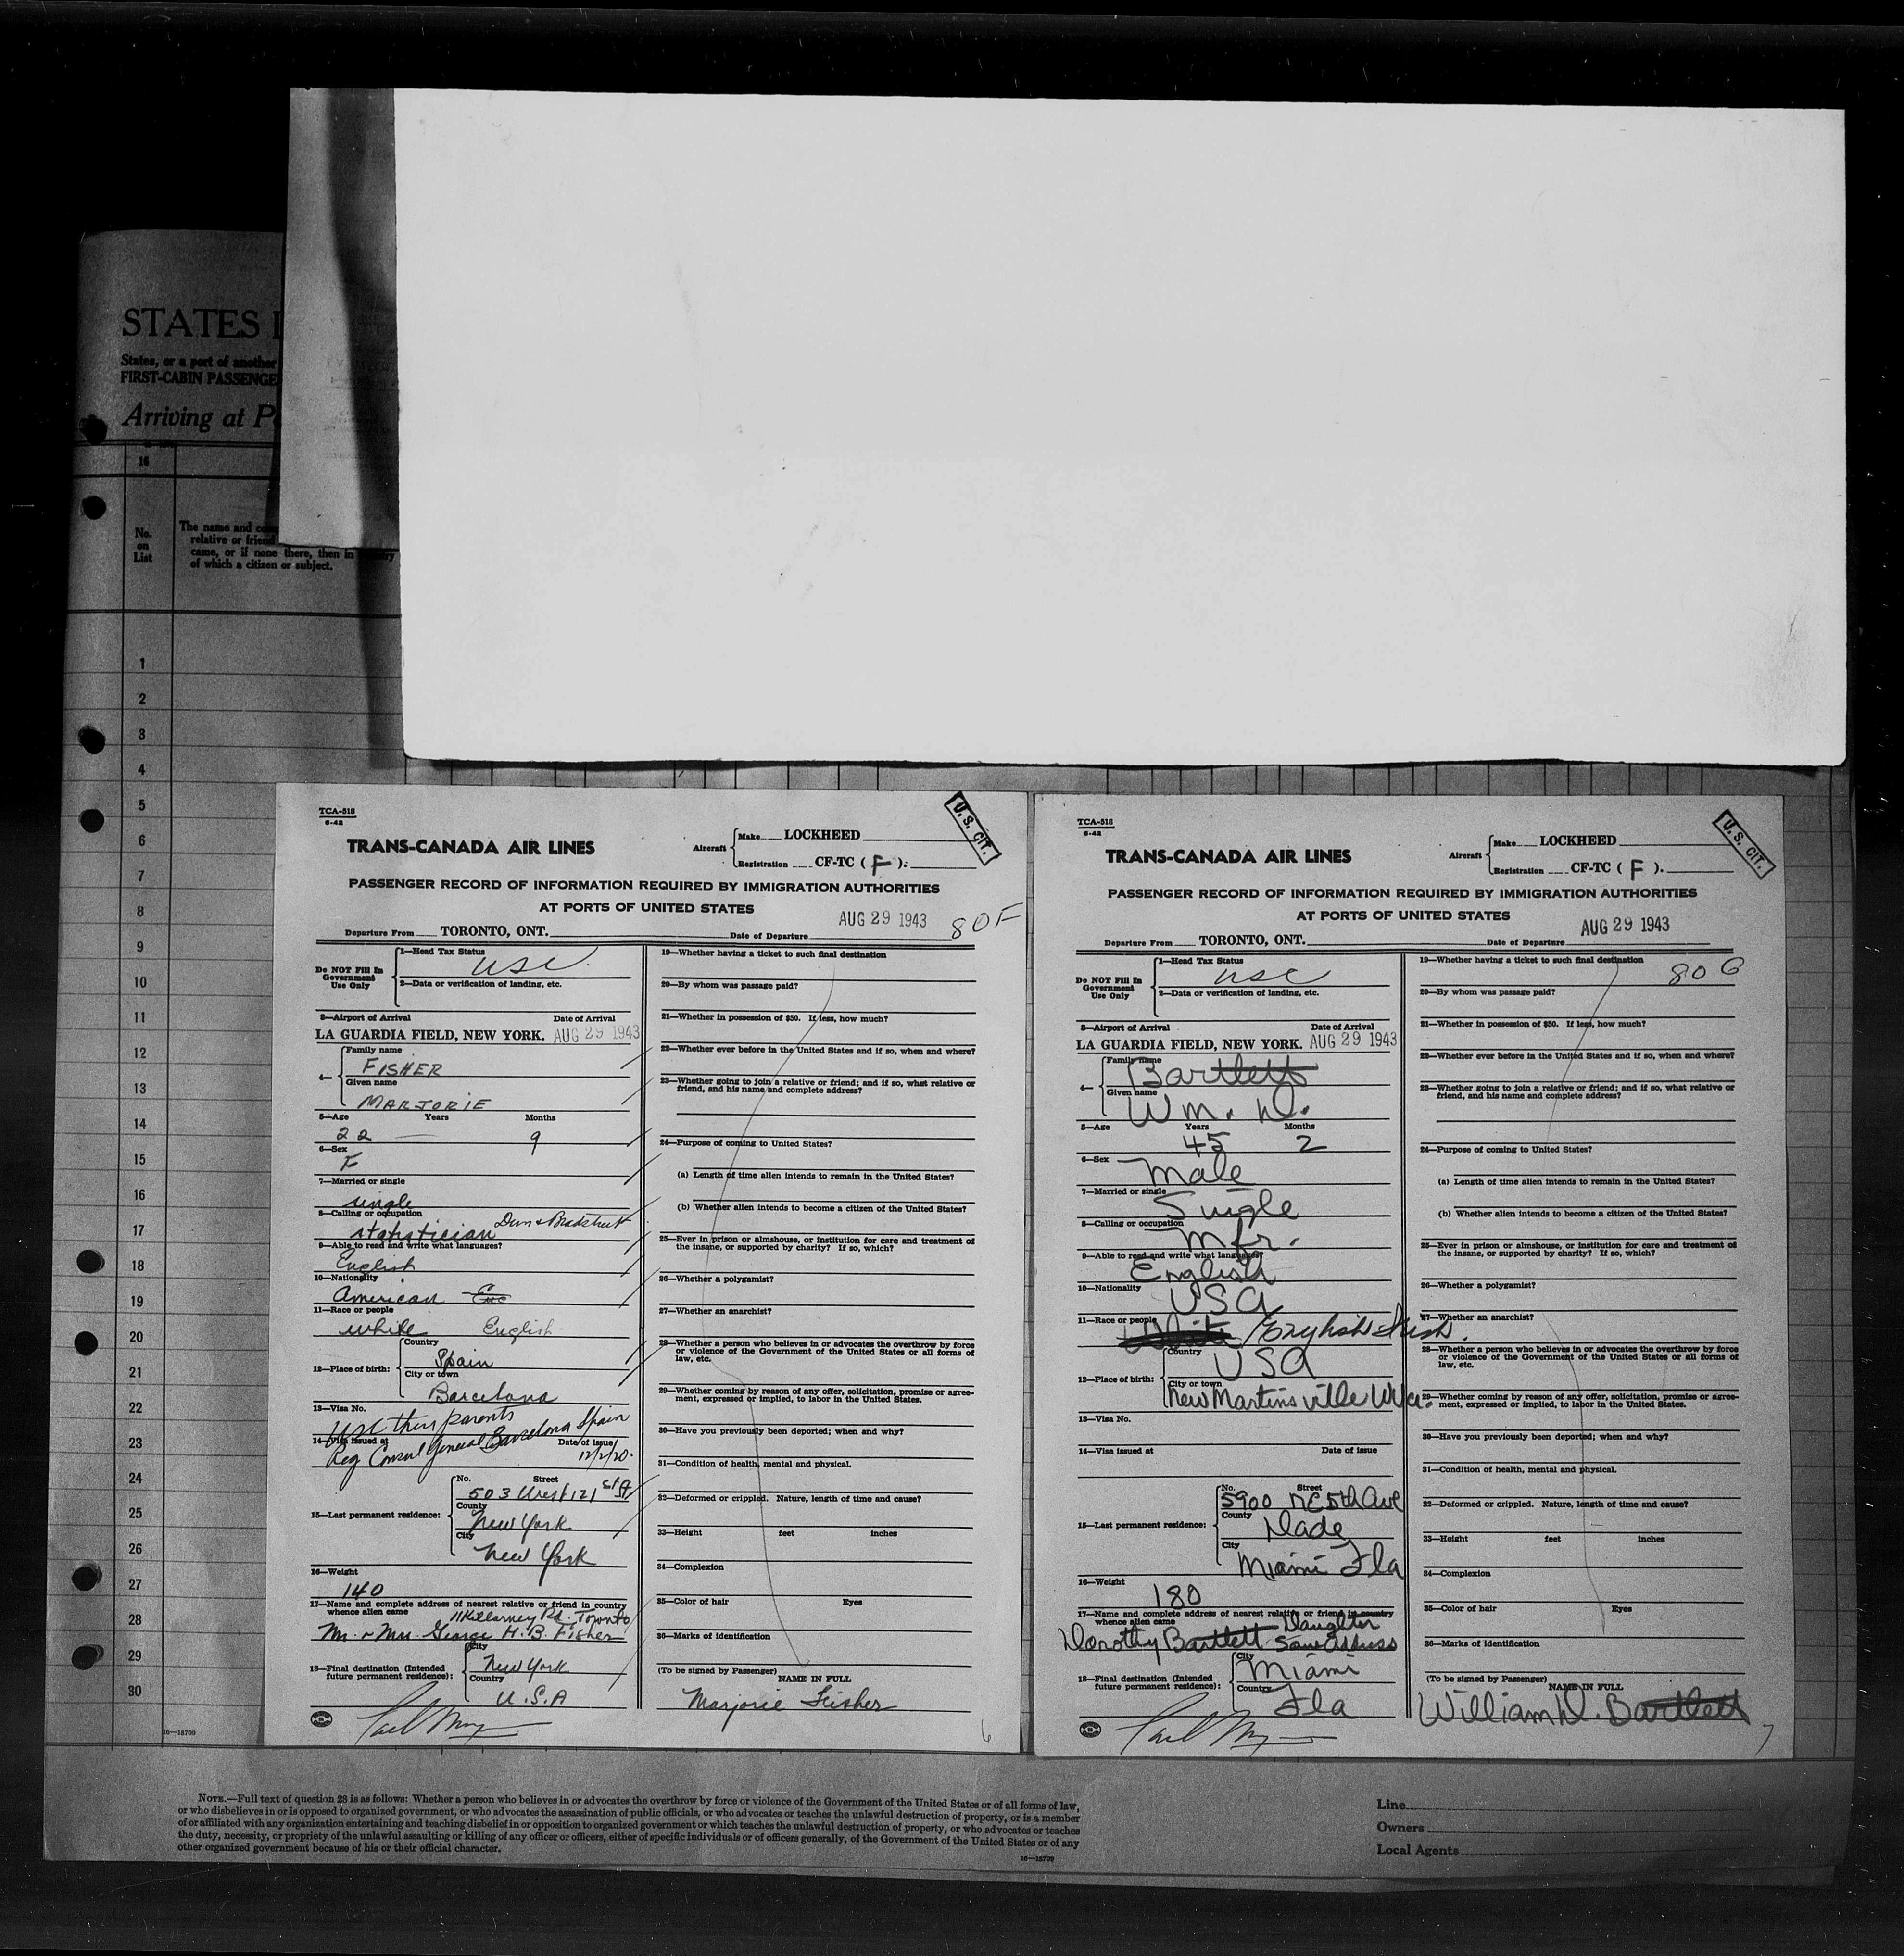 STATES I
States, or a port of another
FIRST-CABIN PASSENGE
Arriving at P
16
No.
on
List
The name and com
relative or friend
came, or if none there, then in country
of which a citizen or subject.
1
2
3
4
5
6
7
8
9
10
11
12
13
14
15
16
17
18
19
20
21
22
23
24
25
26
27
28
29
30
16—18709
TCA-518
6-42
TRANS-CANADA AIR LINES
Aircraft
Make LOCKHEED
Registration CF-TC ( F ).
U. S. CIT.
PASSENGER RECORD OF INFORMATION REQUIRED BY IMMIGRATION AUTHORITIES
AT PORTS OF UNITED STATES
AUG 29 1943
80F
Departure From TORONTO, ONT. Date of Departure
Do NOT Fill In
Government
Use Only
1—Head Tax Status
USC.
2—Data or verification of landing, etc.
3—Airport of Arrival Date of Arrival
LA GUARDIA FIELD, NEW YORK. AUG 29 1943
4— Family name
FISHER
Given name
MARJORIE
5—Age Years Months
22 — 9
6—Sex
F
7—Married or single
single
8—Calling or occupation
statistician Dun & Bradstreet
9—Able to read and write what languages?
English
10—Nationality
American
11—Race or people
white English
12—Place of birth:
Country
Spain
City or town
Barcelona
13—Visa No.
USC thru parents
14—Visa issued at Date of issue
Reg Consul General Barcelona Spain
12/2/20.
15—Last permanent residence:
No. Street
503 West 121 st St
County
New York
City
New York
16—Weight
140
17—Name and complete address of nearest relative or friend in country
whence alien came 11 Killarney Rd. Toronto
Mr. & Mrs. George H. B. Fisher
18—Final destination (Intended
future permanent residence):
City
New York
Country
U.S.A
19—Whether having a ticket to such final destination
20—By whom was passage paid?
21—Whether in possession of $50. If less, how much?
22—Whether ever before in the United States and if so, when and where?
23—Whether going to join a relative or friend; and if so, what relative or
friend, and his name and complete address?
24—Purpose of coming to United States?
(a) Length of time alien intends to remain in the United States?
(b) Whether alien intends to become a citizen of the United States?
25—Ever in prison or almshouse, or institution for care and treatment of
the insane, or supported by charity? If so, which?
26—Whether a polygamist?
27—Whether an anarchist?
28—Whether a person who believes in or advocates the overthrow by force
or violence of the Government of the United States or all forms of
law, etc.
29—Whether coming by reason of any offer, solicitation, promise or agree-
ment, expressed or implied, to labor in the United States.
30—Have you previously been deported; when and why?
31—Condition of health, mental and physical.
32—Deformed or crippled. Nature, length of time and cause?
33—Height feet inches
34—Complexion
35—Color of hair Eyes
36—Marks of identification
(To be signed by Passenger) NAME IN FULL
Marjorie Fisher
6
TCA-518
6-42
TRANS-CANADA AIR LINES
Aircraft
Make LOCKHEED
Registration CF-TC ( F ).
U. S. CIT.
PASSENGER RECORD OF INFORMATION REQUIRED BY IMMIGRATION AUTHORITIES
AT PORTS OF UNITED STATES
AUG 29 1943
Departure From TORONTO, ONT. Date of Departure
Do NOT Fill In
Government
Use Only
1—Head Tax Status
USC
2—Data or verification of landing, etc.
3—Airport of Arrival Date of Arrival
LA GUARDIA FIELD, NEW YORK. AUG 29 1943
4— Family name
Bartlett
Given name
Wm. D.
5—Age Years Months
45 2
6—Sex
Male
7—Married or single
Single
8—Calling or occupation
Mfr.
9—Able to read and write what languages?
English
10—Nationality
USA
11—Race or people
White English Irish.
12—Place of birth:
Country
USA
City or town
New Martinsville W Va.
13—Visa No.
14—Visa issued at Date of issue
15—Last permanent residence:
No. Street
5900 NE 5th Ave
County
Dade
City
Miami Fla
16—Weight
180
17—Name and complete address of nearest relative or friend in country
whence alien came Daughter
Dorothy Bartlett Same address
18—Final destination (Intended
future permanent residence):
City
Miami
Country
Fla
19—Whether having a ticket to such final destination
80 G
20—By whom was passage paid?
21—Whether in possession of $50. If less, how much?
22—Whether ever before in the United States and if so, when and where?
23—Whether going to join a relative or friend; and if so, what relative or
friend, and his name and complete address?
24—Purpose of coming to United States?
(a) Length of time alien intends to remain in the United States?
(b) Whether alien intends to become a citizen of the United States?
25—Ever in prison or almshouse, or institution for care and treatment of
the insane, or supported by charity? If so, which?
26—Whether a polygamist?
27—Whether an anarchist?
28—Whether a person who believes in or advocates the overthrow by force
or violence of the Government of the United States or all forms of
law, etc.
29—Whether coming by reason of any offer, solicitation, promise or agree-
ment, expressed or implied, to labor in the United States.
30—Have you previously been deported; when and why?
31—Condition of health, mental and physical.
32—Deformed or crippled. Nature, length of time and cause?
33—Height feet inches
34—Complexion
35—Color of hair Eyes
36—Marks of identification
(To be signed by Passenger) NAME IN FULL
William D. Bartlett
7
NOTE.—Full text of question 28 is as follows: Whether a person who believes in or advocates the overthrow by force or violence of the Government of the United States or of all forms of law,
or who disbelieves in or is opposed to organized government, or who advocates the assassination of public officials, or who advocates or teaches the unlawful destruction of property, or is a member
of or affiliated with any organization entertaining and teaching disbelief in or opposition to organized government or which teaches the unlawful destruction of property, or who advocates or teaches
the duty, necessity, or propriety of the unlawful assaulting or killing of any officer or officers, either of specific individuals or of officers generally, of the Government of the United States or of any
other organized government because of his or their official character.
16—18709
Line
Owners
Local Agents